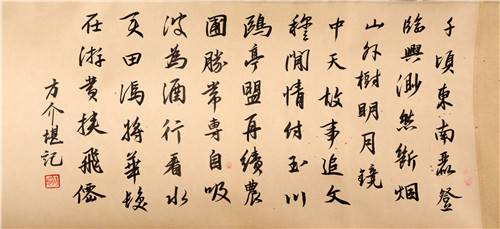 千頃東南最登
臨興渺然斷烟
山外樹明月鏡
中天故事追文
穆閒情付玉川
鷗亭盟再續農
圃勝常專自吸
波為酒行看水
変田馮將華
在游賞挾飛僊
方介堪記